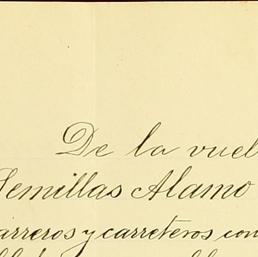 De la vuel
Semillas Alamo
arreros y carreteros con